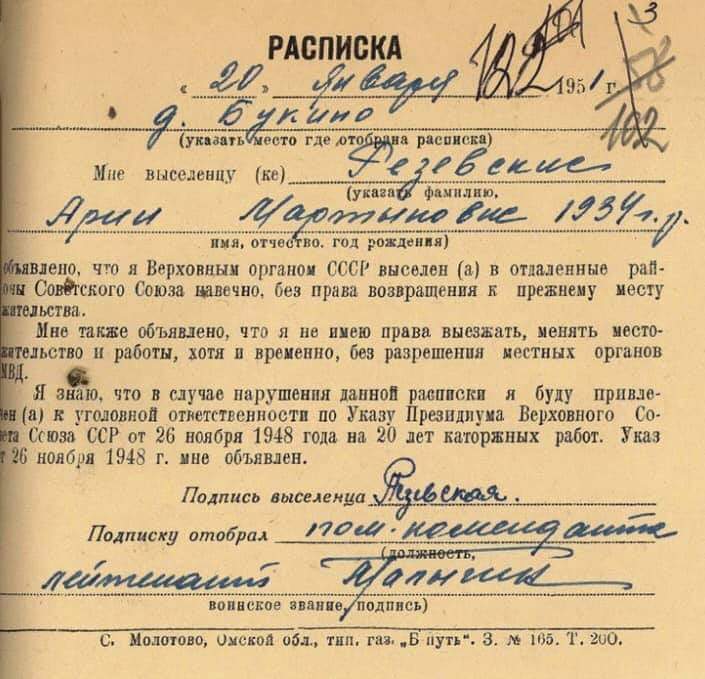 3
РАСПИСКА
122
56
„ 20 „ января 1951 г.
102
д. Букино
(указать место где отобрана расписка)
Мне выселенцу (ке) Резевские
(указать фамилию,
Арии Мартыновне 1934 г. р.
имя, отчество. год рождения)
объявлено, что я Верховным органом СССР выселен (а) в отдаленные рай-
оны Советского Союза навечно, без права возвращения к прежнему месту
жительства.
Мне также объявлено, что я не имею права выезжать, менять место-
жительство и работы, хотя и временно, без разрешения местных органов
МВД.
Я знаю, что в случае нарушения данной расписки я буду привле-
чен (а) к уголовной ответственности по Указу Президиума Верховного Со-
вета Союза ССР от 26 ноября 1948 года на 20 лет каторжных работ. Указ
от 26 ноября 1948 г. мне объявлен.
Подпись выселенца Резевская.
Подписку отобрал пом. коменданта
(должность,
лейтенант
воинское звание, подпись)
С. Молотово, Омской обл., тип. газ. „Б путь". З. № 165. Т. 200.